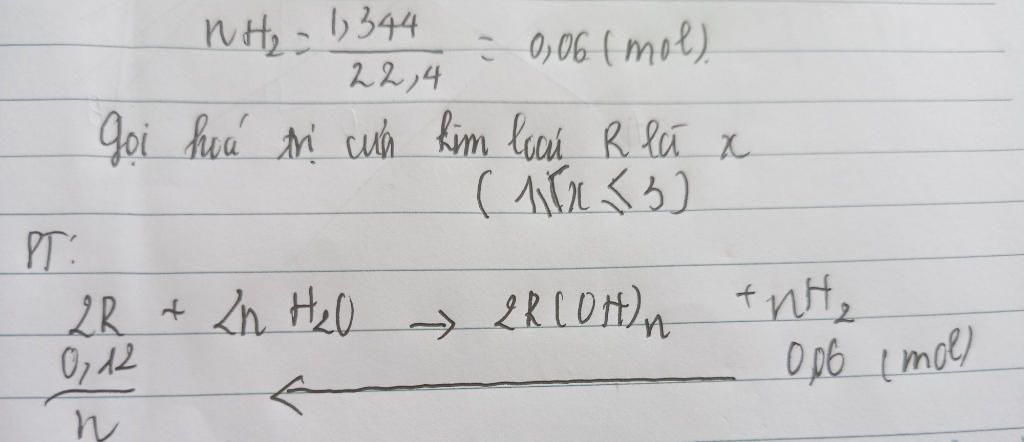 nH₂ = 1,344 / 22,4 = 0,06 (mol).
Gọi hoá trị của kim loại R là x
(1 ≤ x ≤ 3)
PT:
2R + 2n H₂O → 2R(OH)ₙ + nH₂
0,12 / n ← 0,06 (mol)